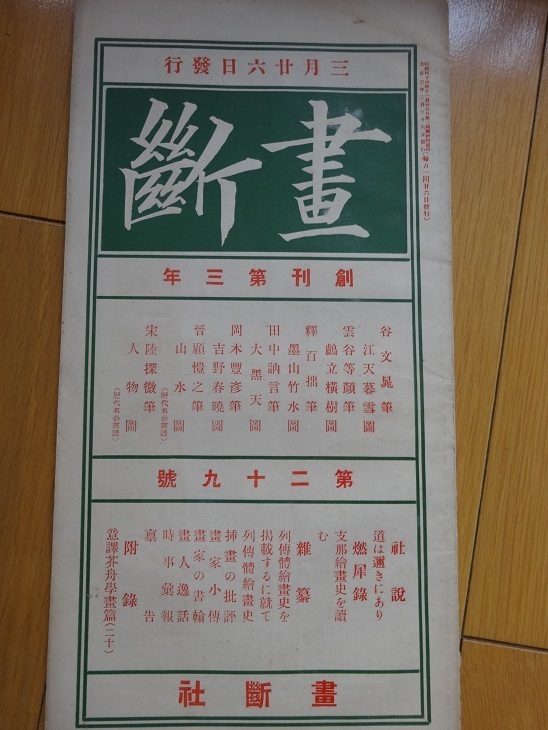 三月廿六日發行
畫斷
創刊第三年
谷文晁筆
江天暮雪圖
雲谷等顏筆
鷓立橫樹圖
釋百拙筆
墨山竹水圖
田中訥言筆
大黑天圖
岡本豐彥筆
吉野春曉圖
晉顧愷之筆
山水圖
(歷代名公畫譜)
宋陸探微筆
人物圖
(歷代名公畫譜)
第二十九號
社說
道は邇きにあり
燃犀錄
支那繪畫史を讀
む
雜纂
列傳體繪畫史を
揭載するに就て
列傳體繪畫史
挿畫の批評
畫家小傳
畫家の書翰
畫人逸話
時事彙報
稟告
附錄
意譯芥舟學畫篇(二十)
畫斷社
(每月一回廿六日發行)